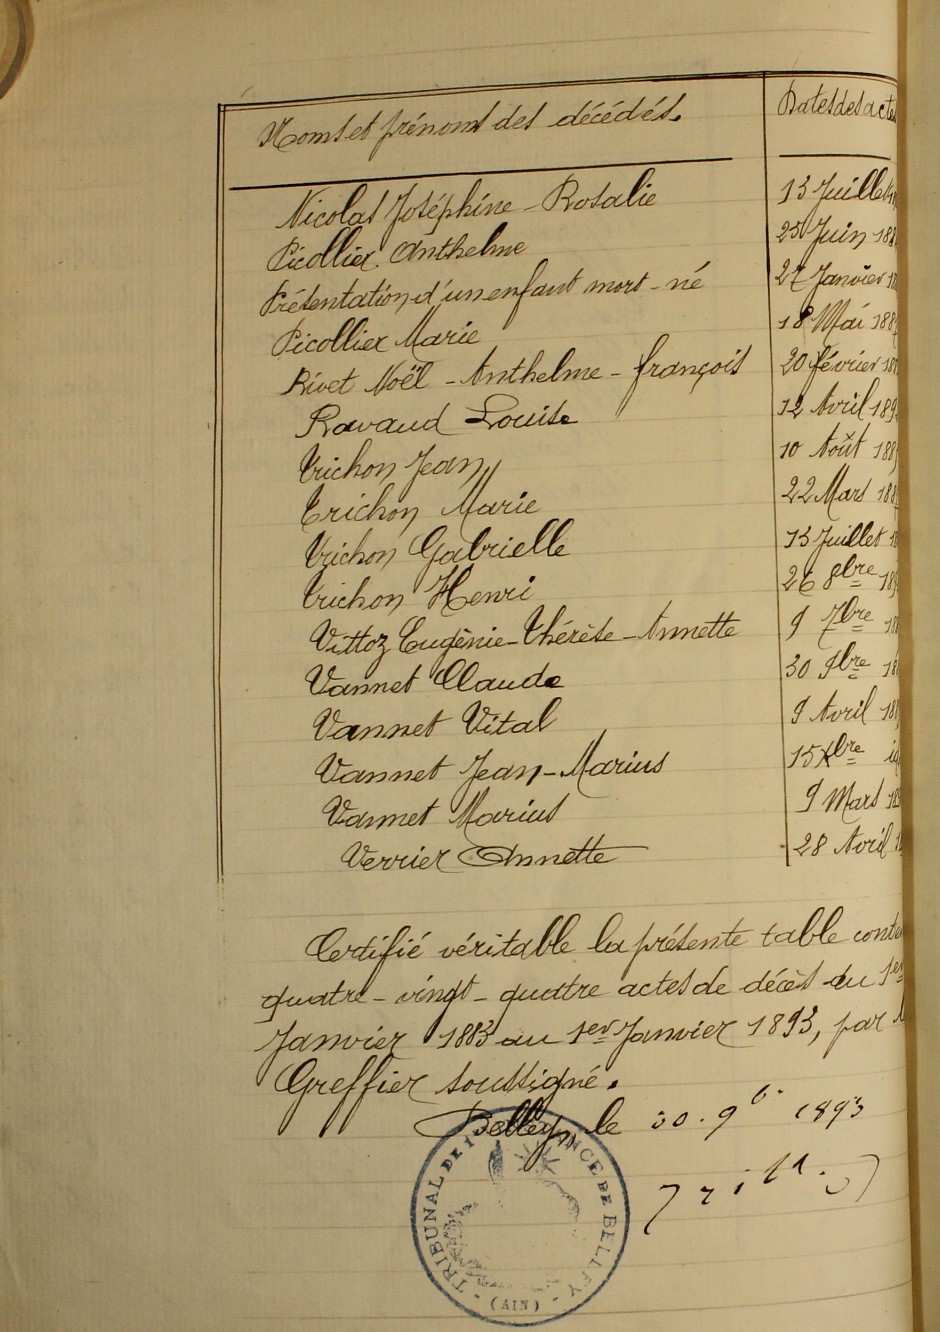 Noms et prénoms des décédés. Dates des actes
Nicolas Joséphine - Rosalie 13 Juillet
Picollier Anthelme 25 Juin 188
Présentation d'un enfant mort - né 27 Janvier
Picollier Marie 18 Mai 188
Rivet Noël - Anthelme - françois 20 février 18
Ravaud Louise 12 Avril 189
Trichon Jean 10 Août 188
Trichon Marie 22 Mars 188
Trichon Gabrielle 13 Juillet 18
Trichon Henri 26 8bre 189
Vittoz Eugènie - Thérèse - Annette 9 7bre 18
Vannet Claude 30 9bre 18
Vannet Vital 9 Avril 18
Vannet Jean - Marius 15 Xbre
Vannet Marius 9 Mars 18
Verrier Annette 28 Avril 1
Certifié véritable la présente table conte
quatre - vingt - quatre actes de décès du 1er
Janvier 1883 au 1er Janvier 1893, par
Greffier soussigné.
Belley, le 30. 9b. 1893
TRIBUNAL DE 1 NCE DE BELLEY
(AIN)